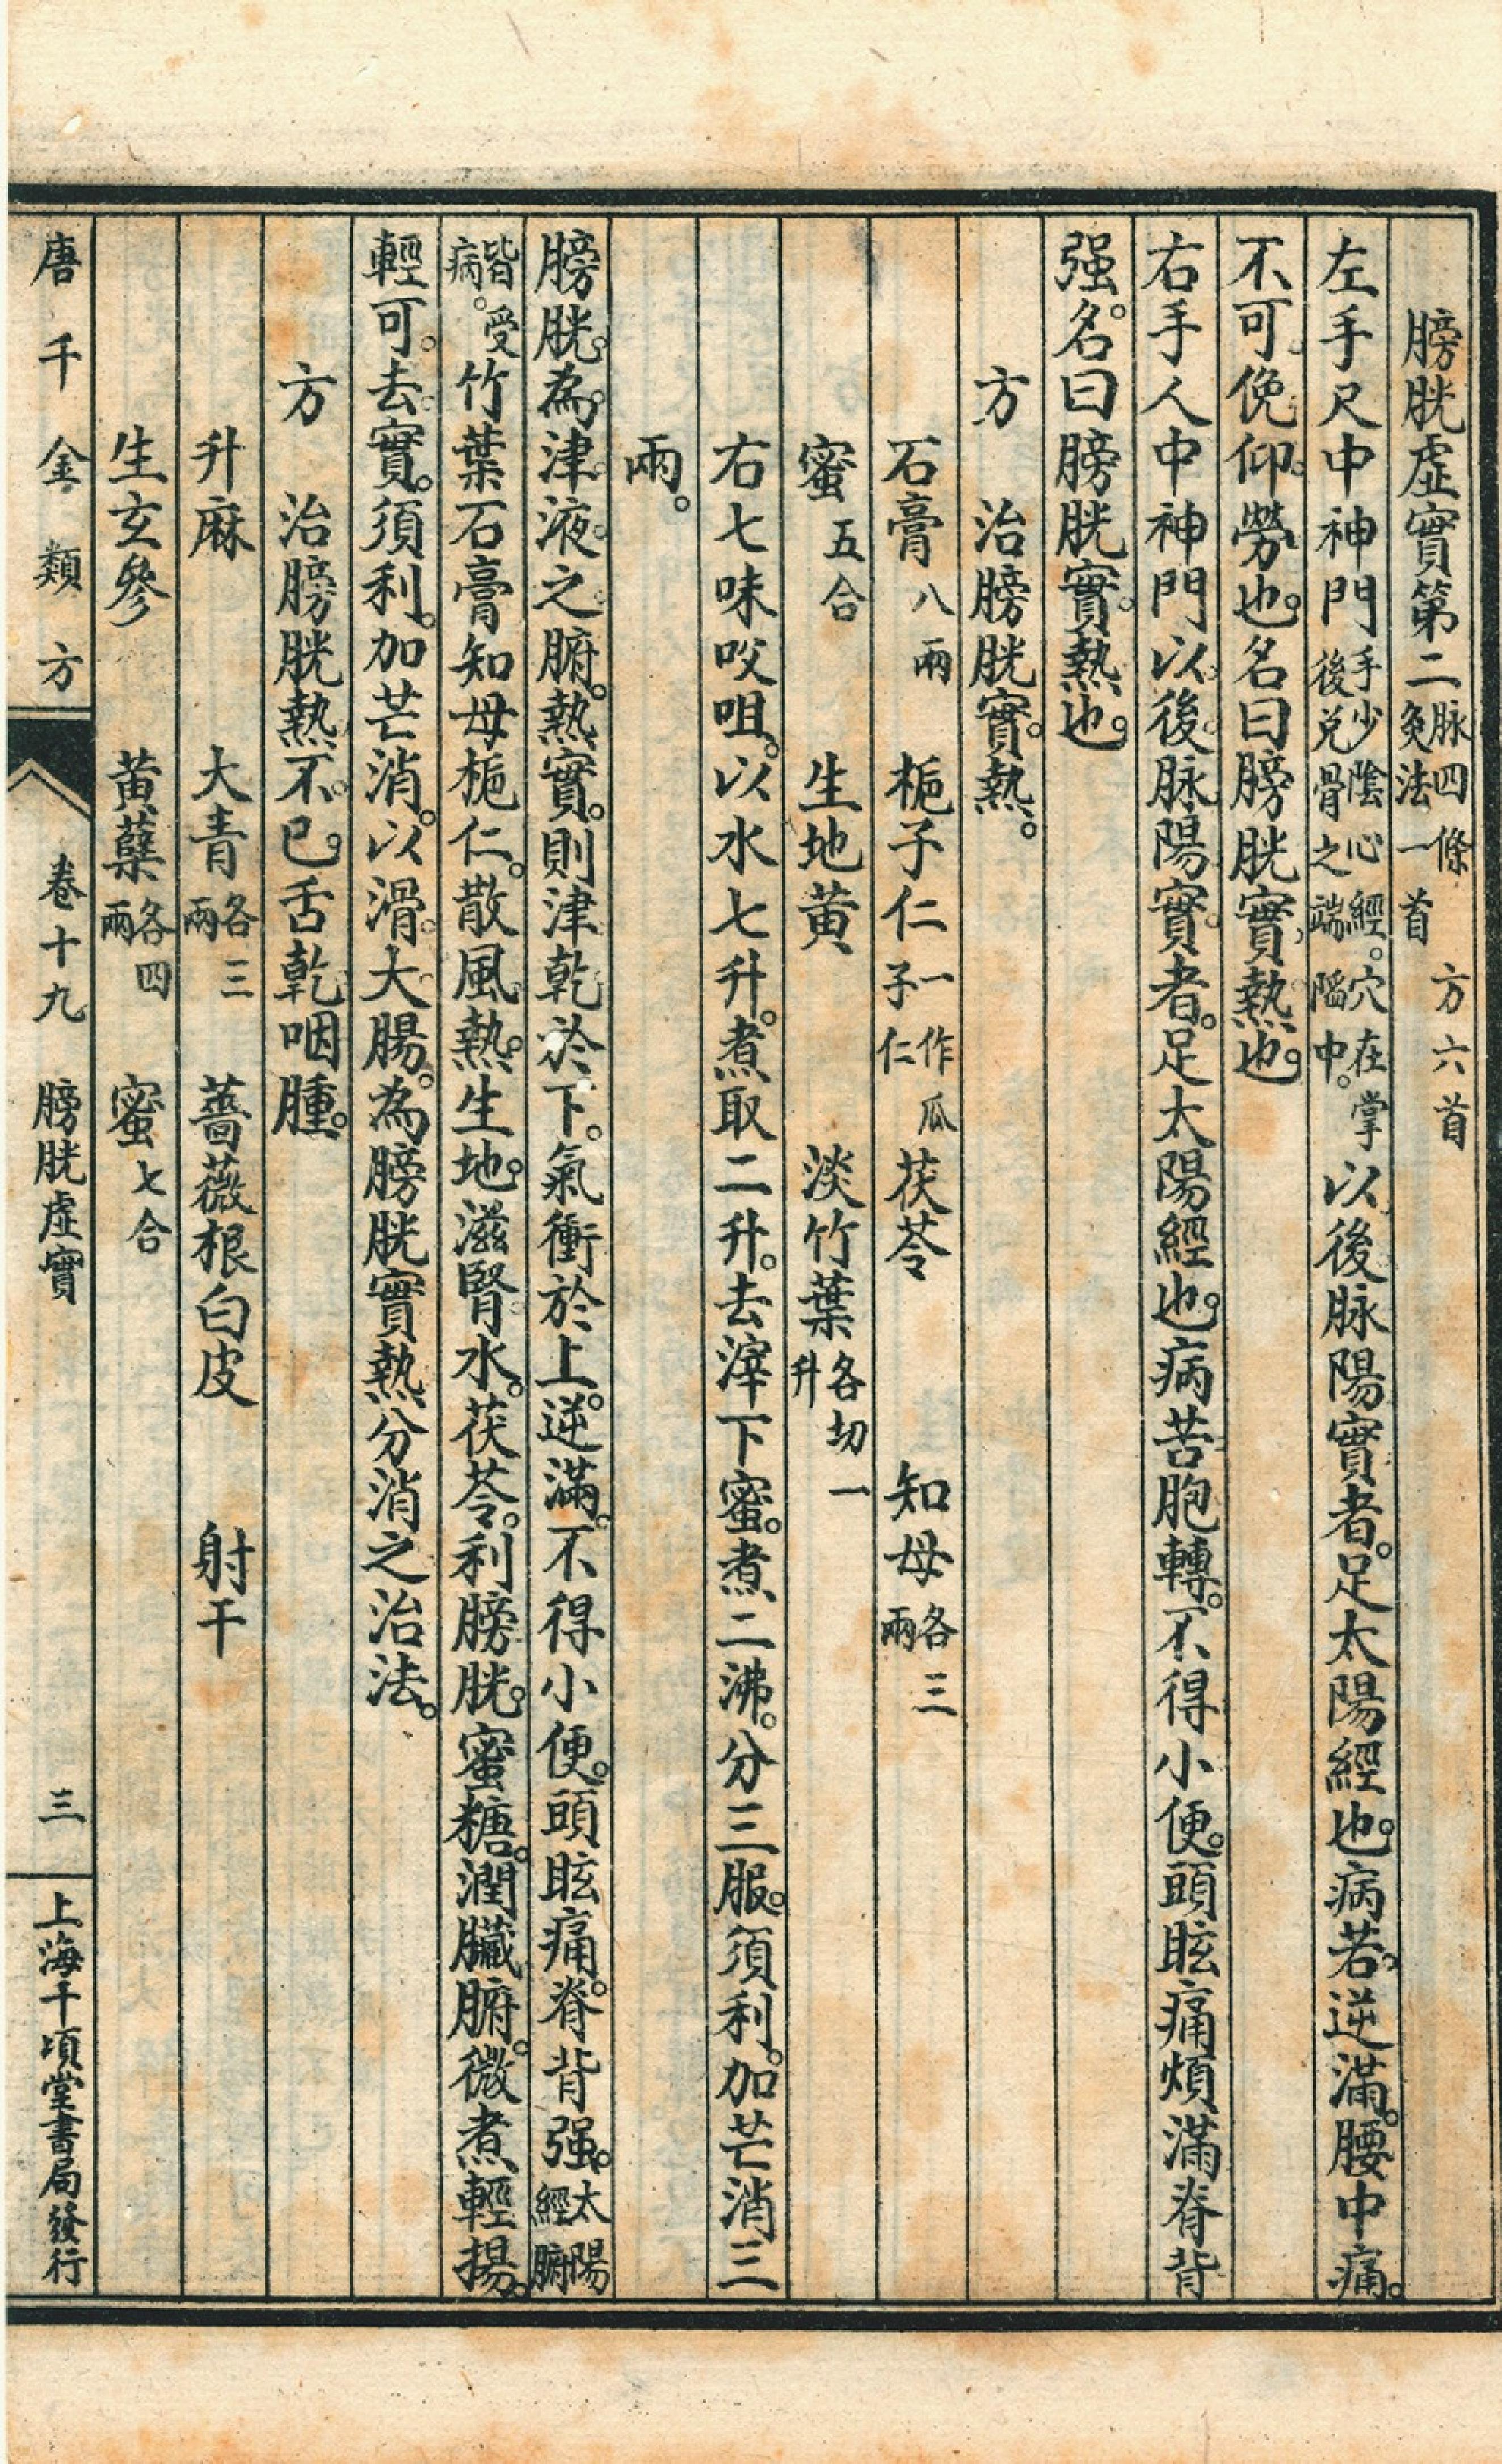 膀胱虛實第二脉四條灸法一首方六首
左手尺中神門手少陰心經。穴在掌後兌骨之端陷中。以後脉陽實者。足太陽經也。病若逆滿。腰中痛。
不可俛仰。勞也。名曰膀胱實熱也。
右手人中神門以後脉陽實者。足太陽經也。病苦胞轉。不得小便。頭眩痛煩滿脊背
强。名曰膀胱實熱也。
方　治膀胱實熱。
石膏八兩　梔子仁一作瓜子仁　茯苓　知母各三兩
蜜五合　生地黄　淡竹葉各切一升
右七味㕮咀。以水七升。煮取二升。去滓下蜜。煮二沸。分三服。須利。加芒消三
兩。
膀胱。為津液之腑。熱實。則津乾於下。氣衝於上。逆滿。不得小便。頭眩痛。脊背强。太陽經腑
皆受病。竹葉石膏知母梔仁。散風熱。生地。滋腎水。茯苓。利膀胱。蜜糖。潤臟腑。微煮輕揚。
輕可。去實。須利。加芒消。以滑大腸。為膀胱實熱分消之治法。
方　治膀胱熱不已。舌乾咽腫。
升麻　大青各三兩　薔薇根白皮　射干
生玄參　黄蘖各四兩　蜜七合
唐千金類方　卷十九　膀胱虛實　三　上海千頃堂書局發行